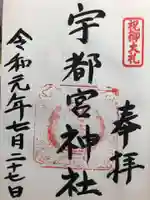 奉拝
宇都宮神社
令和元年七月二十七日
祝御大礼